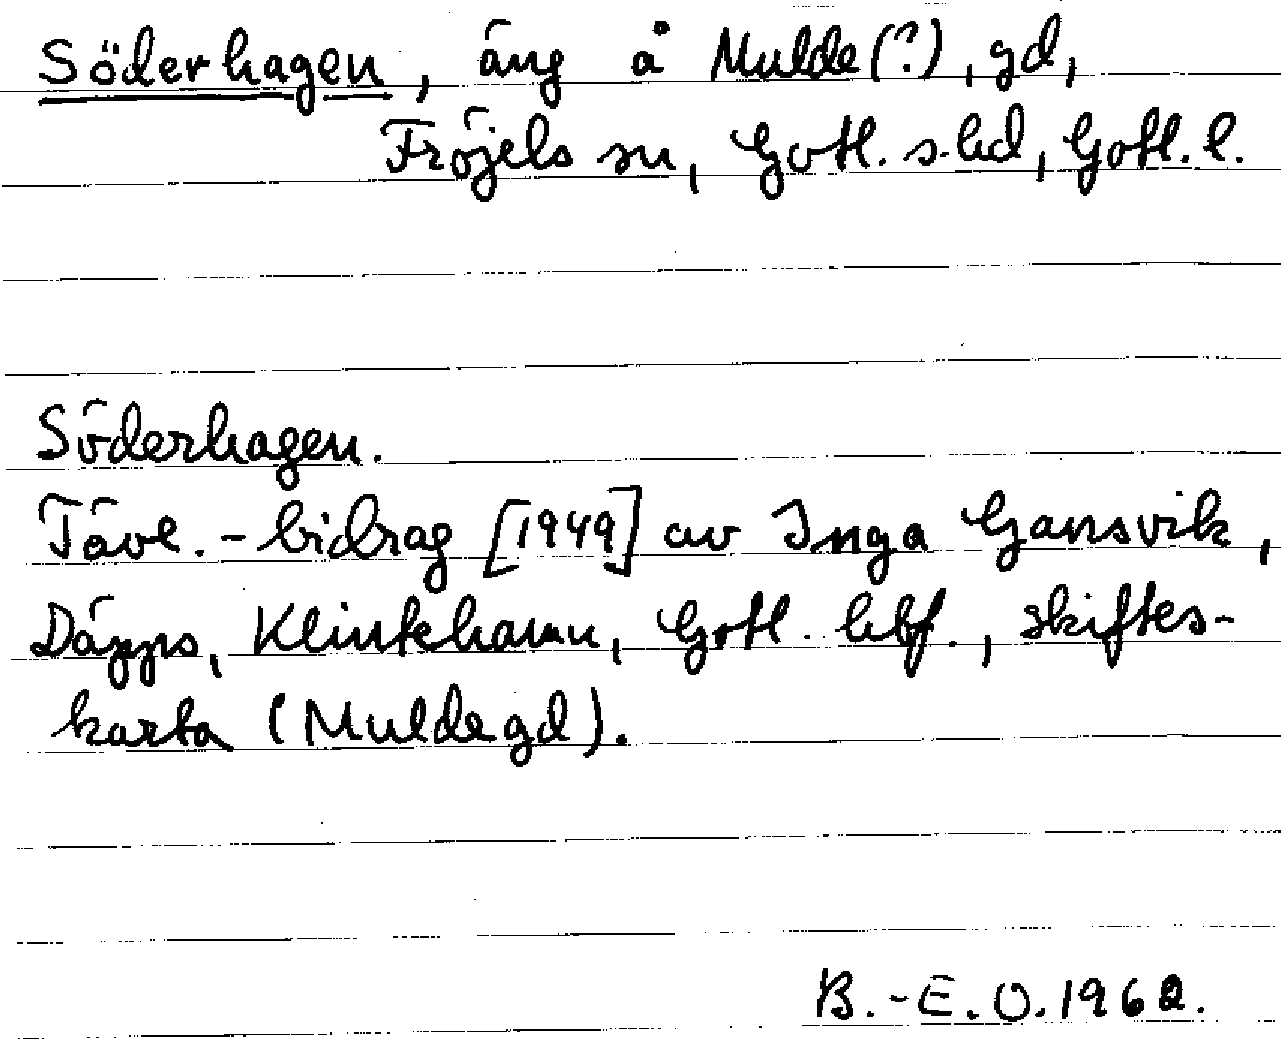 Söderhagen, äng å Mulde(?), gd,
Fröjels sn, Gotl. s. hd, Gotl. l.
Söderhagen.
Tävl.-bidrag [1949] av Inga Gansvik,
Däpps, Klintehamn, Gotl. hbf., skiftes-
karta (Mulde gd).
B.-E.O. 1962.